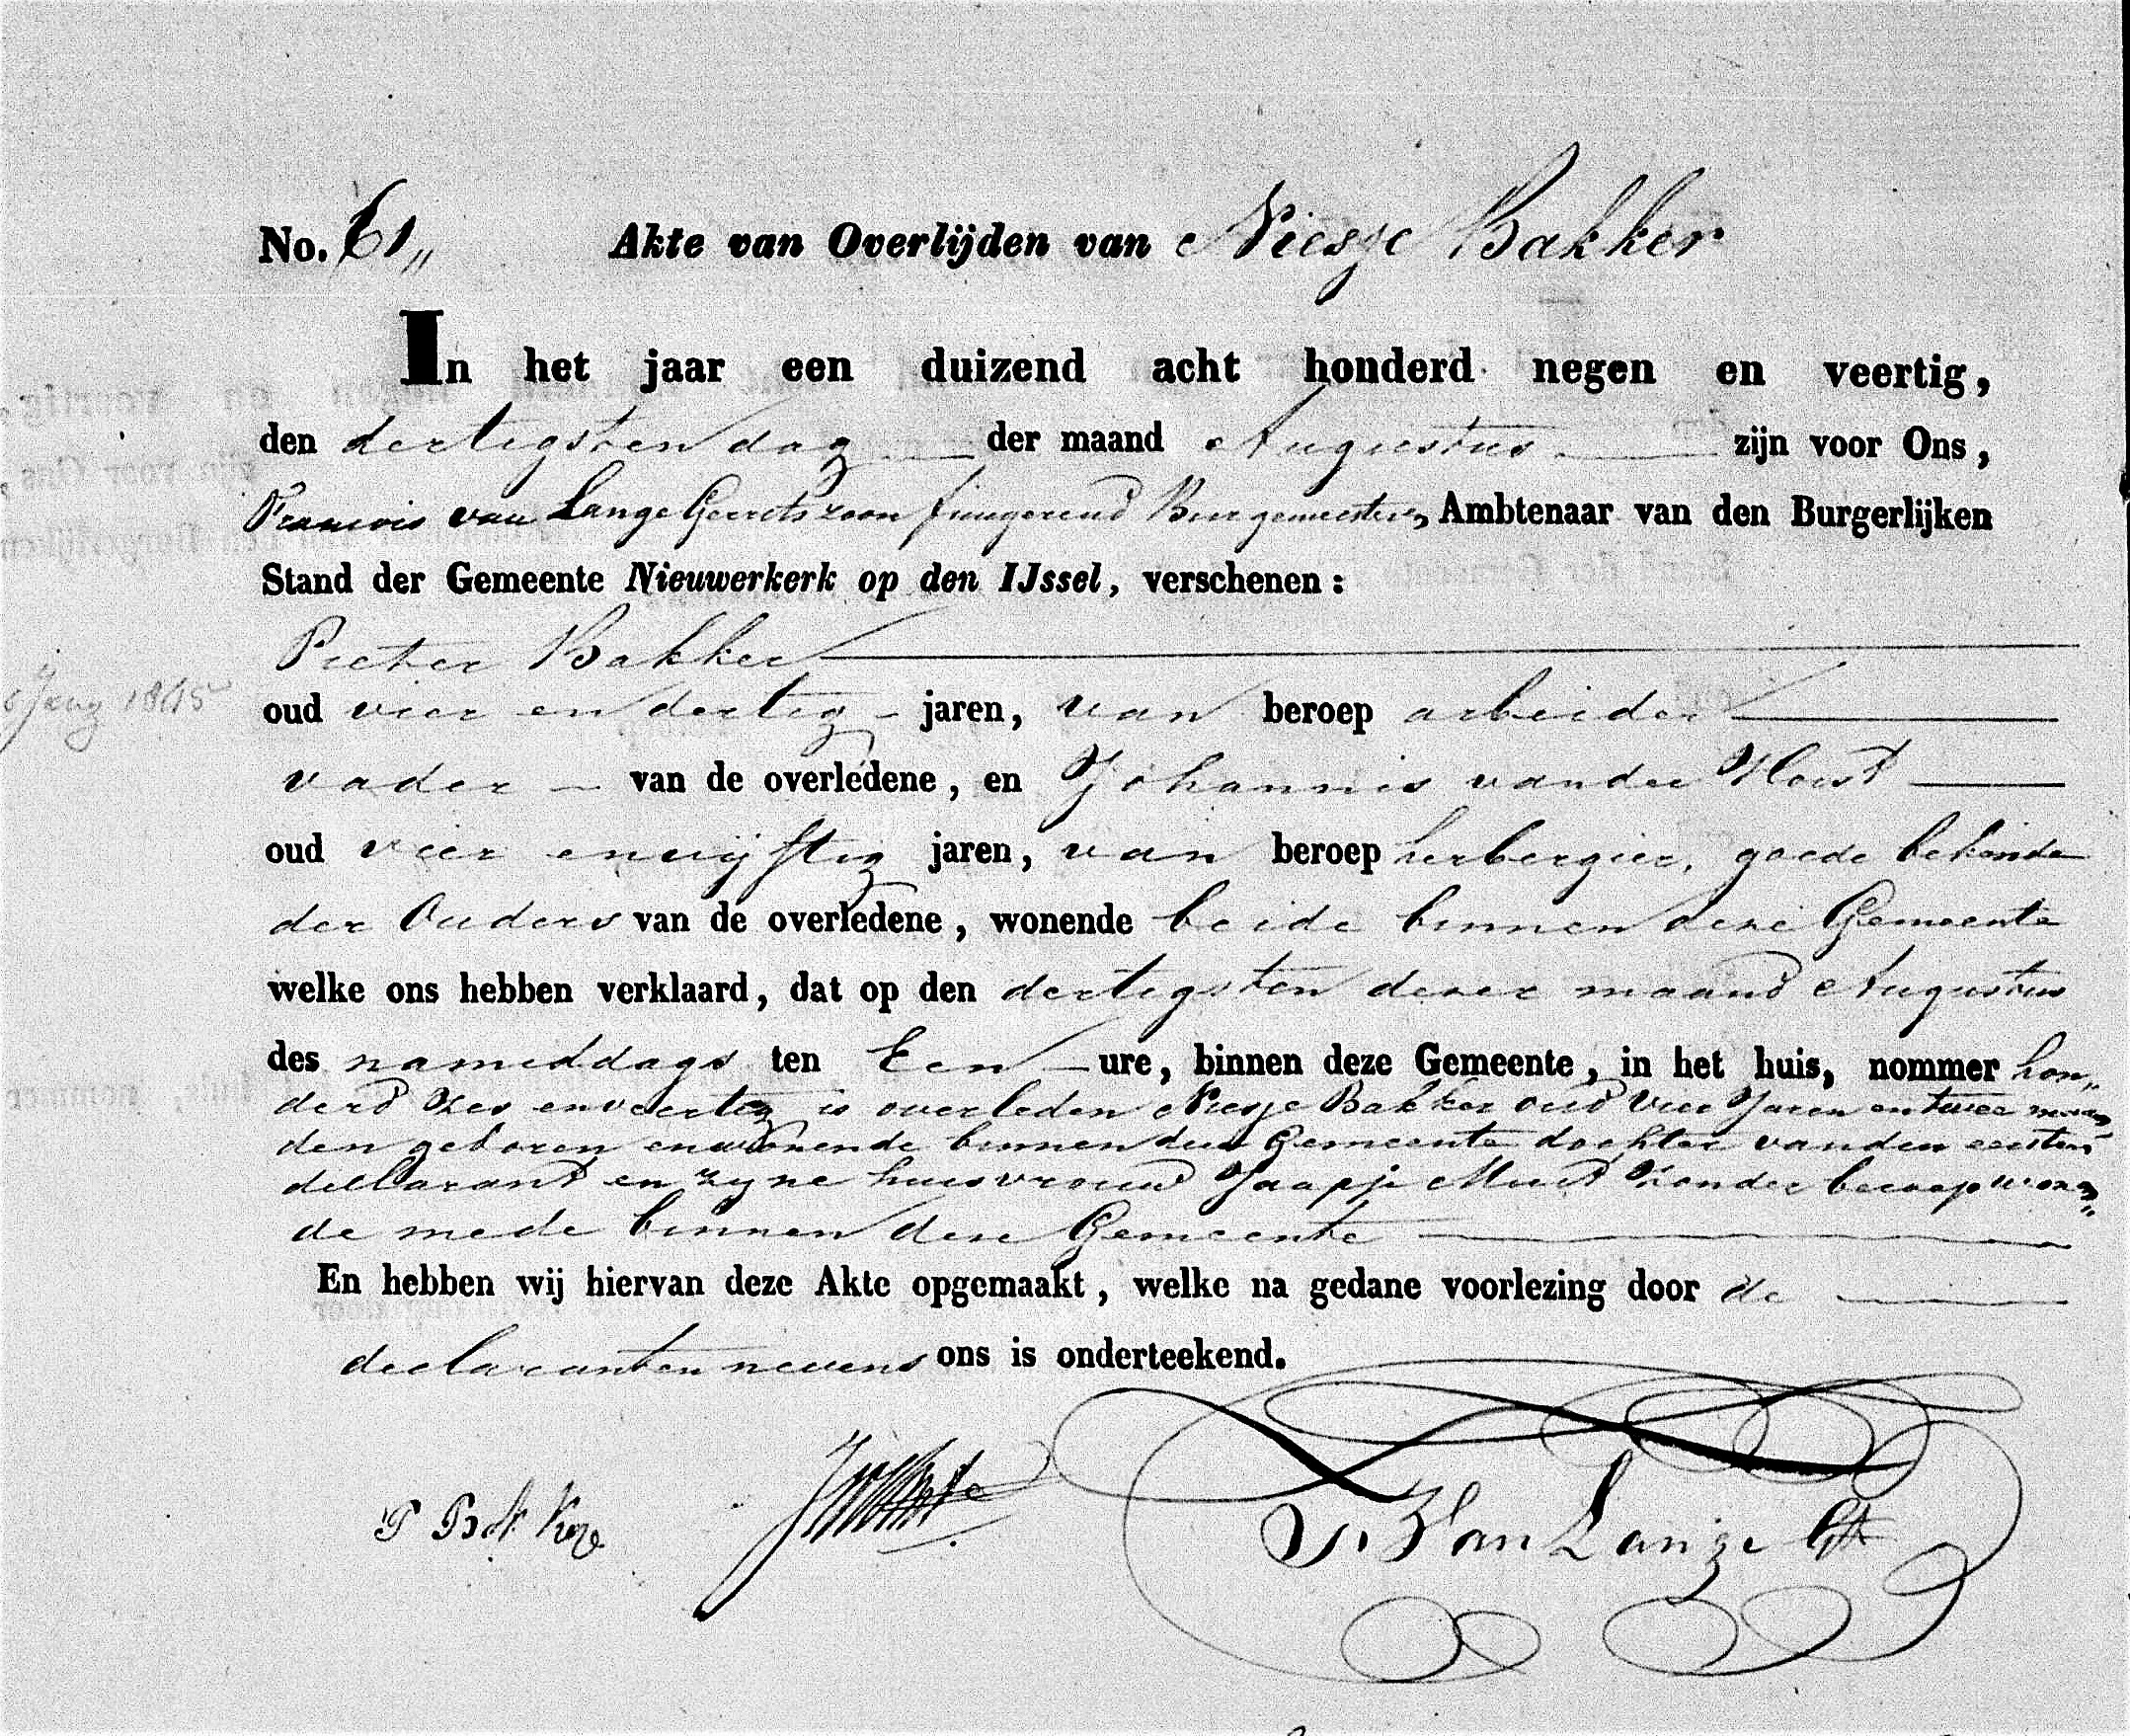 No. 61,, Akte van Overlijden van Niesje Bakker
In het jaar een duizend acht honderd negen en veertig,
den dertigsten dag der maand Augustus zijn voor Ons,
Francois van Lange Gerritszoon fungerend Burgemeester, Ambtenaar van den Burgerlijken
Stand der Gemeente Nieuwerkerk op den IJssel, verschenen:
Pieter Bakker
oud vier en dertig jaren, van beroep arbeider
vader van de overledene, en Johannis van der Horst
oud vier en vijftig jaren, van beroep herbergier, goede bekende
der Ouders van de overledene, wonende beide binnen deze Gemeente
welke ons hebben verklaard, dat op den dertigsten dezer maand Augustus
des nameddags ten Een ure, binnen deze Gemeente, in het huis, nommer hon„
derd Zes en veertig is overleden Niesje Bakker oud Vier Jaren en twee maan„
den geboren en wonende binnen deze Gemeente dochter van den eersten
declarant en zyne huisvrouw Jaapje Zonder beroep wonen„
de mede binnen deze Gemeente
En hebben wij hiervan deze Akte opgemaakt, welke na gedane voorlezing door de
declaranten nevens ons is onderteekend.
P Bakker
F. Van Lange Gz
1845